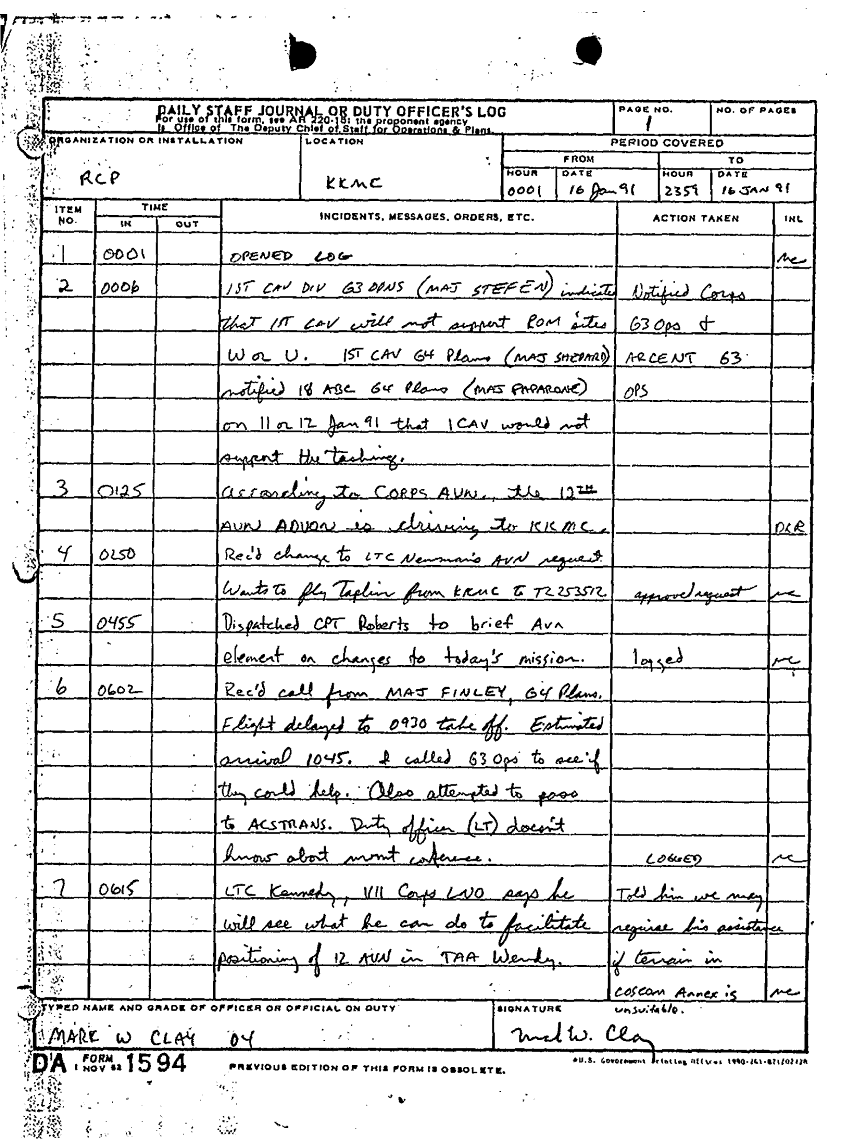 DAILY STAFF JOURNAL OR DUTY OFFICER'S LOG
For use of this form, see AR 220-15; the proponent agency
is Office of The Deputy Chief of Staff for Operations & Plans.
PAGE NO.
1
NO. OF PAGES
ORGANIZATION OR INSTALLATION
RCP
LOCATION
KKMC
PERIOD COVERED
FROM TO
HOUR DATE HOUR DATE
0001 16 Jan 91 2359 16 JAN 91
ITEM NO. TIME IN OUT INCIDENTS, MESSAGES, ORDERS, ETC. ACTION TAKEN INL
1 0001 OPENED LOG mc
2 0006 1ST CAV DIV G3 OPNS (MAJ STEFFEN) indicate Notified Corps
that 1ST CAV will not support ROM sites G3 Ops &
W or U. 1ST CAV G4 Plans (MAJ SHEPARD) ARCENT G3
notified 18 ABC G4 Plans (MAJ PAPARONE) OPS
on 11 or 12 Jan 91 that 1 CAV would not
support the tasking.
3 0125 According to CORPS AVN., the 12TH
AVN ADVON is driving to KKMC. DCR
4 0250 Rec'd change to LTC Newman's AVN request.
Wants to fly Taplin from KKMC to TZ 253512 approved request mc
5 0455 Dispatched CPT Roberts to brief Avn
element on changes to today's mission. logged mc
6 0602 Rec'd call from MAJ FINLEY, G4 Plans.
Flight delayed to 0930 take off. Estimated
arrival 1045. I called G3 Ops to see if
they could help. Also attempted to pass
to ACSTRANS. Duty officer (LT) doesn't
know about mvmt coference. LOGGED mc
7 0615 LTC Kennedy, VII Corps LNO says he Told him we may
will see what he can do to facilitate require his assistance
positioning of 12 AVN in TAA Wendy. if terrain in
COSCOM Annex is mc
unsuitable.
TYPED NAME AND GRADE OF OFFICER OR OFFICIAL ON DUTY
MARK W CLAY 04
SIGNATURE
Mark W. Clay
DA FORM 1 NOV 62 1594
PREVIOUS EDITION OF THIS FORM IS OBSOLETE.
U.S. Government Printing Office: 1990-261-871/20212